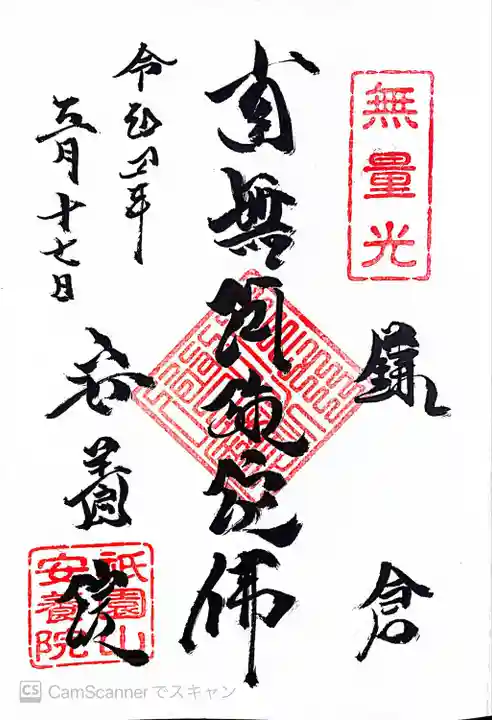 無量光
鎌倉
南無阿弥陀佛
令和四年
五月十七日
安養院
祇園山
安養院
CS CamScannerでスキャン